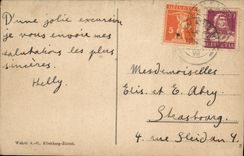 D'une jolie excursion
je vous envoie mes
salutations les plus
sincères.
Helly.
HELVETIA
HELVETIA
5
Mesdemoiselles
Elis. et E. Abry
Strasbourg
4. rue Sleidan 4.
Wehrli A.-G., Kilchberg-Zürich.